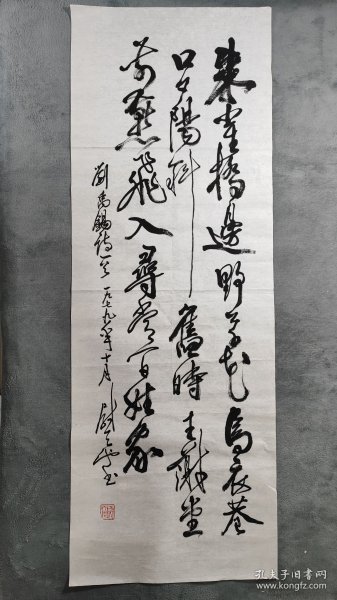 朱雀橋邊野草花烏衣巷
口夕陽斜舊時王謝堂
前燕飛入尋常百姓家
劉禹錫詩一首 一九七九年十月
孔夫子旧书网